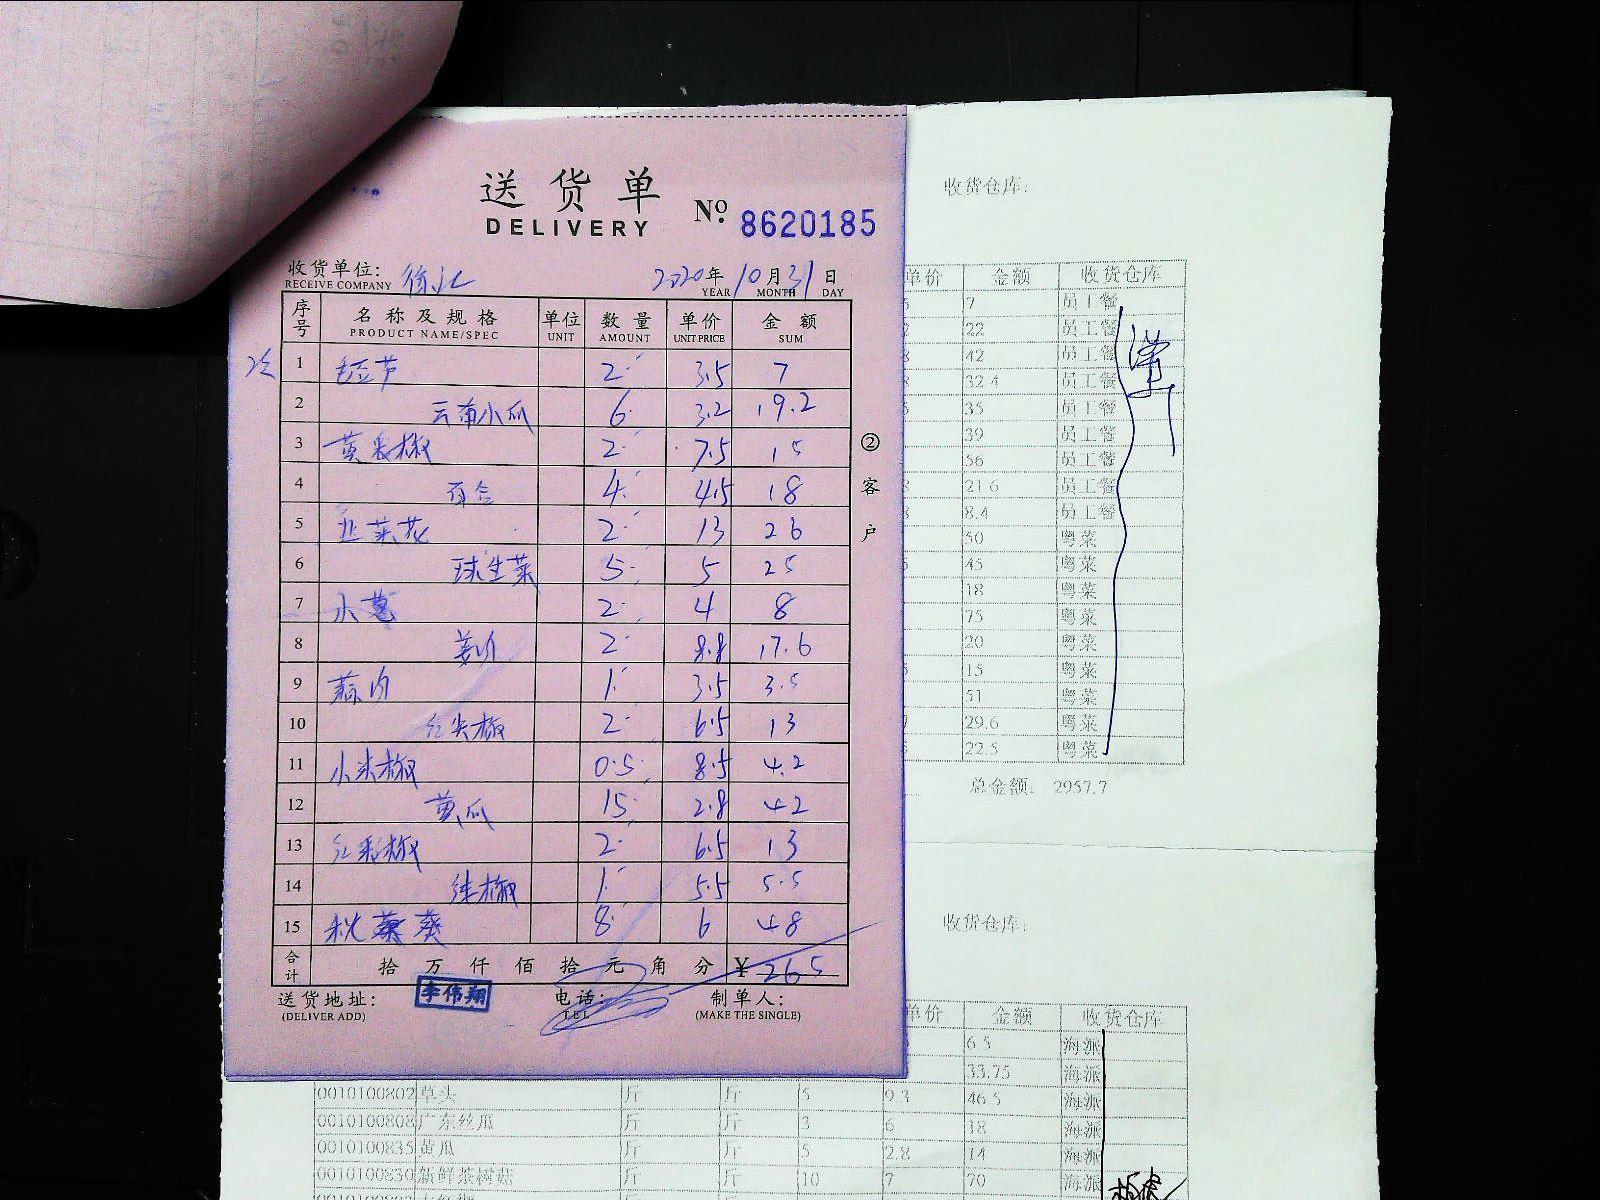 送货单
DELIVERY
№ 8620185
收货单位: 徐汇 2020年10月31日
RECEIVE COMPANY YEAR MONTH DAY
序号 名称及规格 单位 数量 单价 金额
PRODUCT NAME/SPEC UNIT AMOUNT UNIT PRICE SUM
1 毛豆节 2 3.5 7
2 云南小瓜 6 3.2 19.2
3 黄彩椒 2 7.5 15
4 百合 4 4.5 18
5 韭菜花 2 13 26
6 球生菜 5 5 25
7 小葱 2 4 8
8 姜 2 8.8 17.6
9 蒜肉 1 3.5 3.5
10 红尖椒 2 6.5 13
11 小米椒 0.5 8.5 4.2
12 黄瓜 15 2.8 42
13 红彩椒 2 6.5 13
14 线椒 1 5.5 5.5
15 秋葵 8 6 48
合计 拾万仟佰拾元角分 ¥ 265
送货地址: 李伟翔 电话: 制单人:
(DELIVER ADD) TEL (MAKE THE SINGLE)
②客户
收货仓库:
单价 金额 收货仓库
7 员工餐
22 员工餐
42 员工餐
32.4 员工餐
35 员工餐
39 员工餐
56 员工餐
21.6 员工餐
8.4 员工餐
50 粤菜
45 粤菜
18 粤菜
75 粤菜
20 粤菜
15 粤菜
51 粤菜
29.6 粤菜
22.5 粤菜
总金额: 2957.7
收货仓库:
单价 金额 收货仓库
6.5 海派
33.75 海派
0010100802 草头 斤 斤 5 9.3 46.5 海派
0010100808 广东丝瓜 斤 斤 3 6 18 海派
0010100835 黄瓜 斤 斤 5 2.8 14 海派
0010100830 新鲜茶树菇 斤 斤 10 7 70 海派